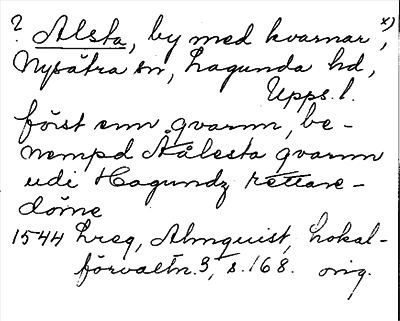 ? Alsta, by med kvarnar x),
Nysätra sn, Lagunda hd,
Upps. l.
först enn qvarnn, be-
nempd Aålesta qvarnn
udi Hagundz rettare-
döme
1544 Lreg, Almquist, Lokal-
förvaltn. 3, s. 168. orig.